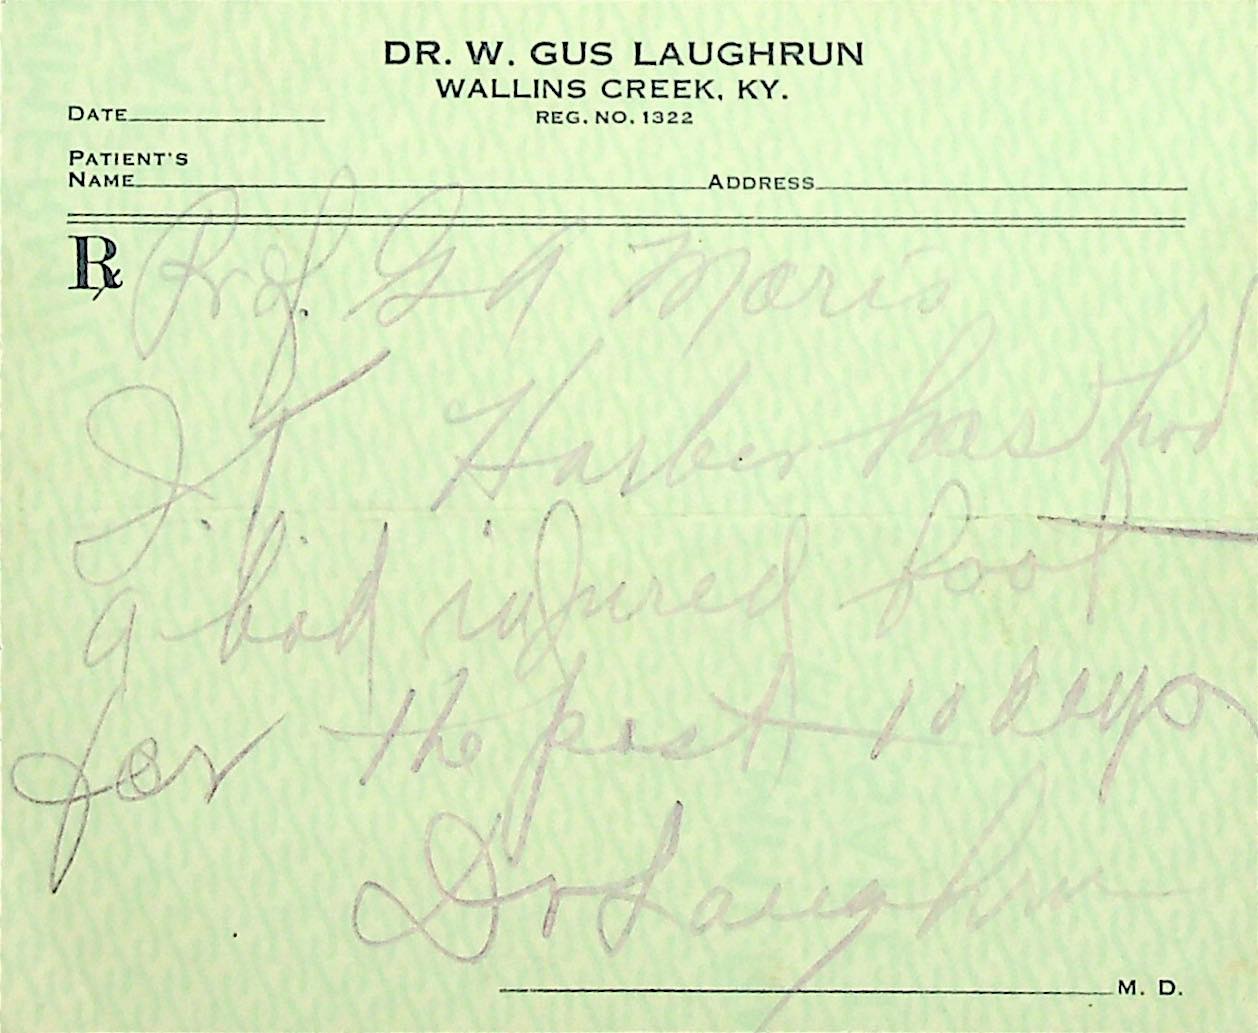 DR. W. GUS LAUGHRUN
WALLINS CREEK, KY.
REG. NO. 1322
DATE
PATIENT'S
NAME ADDRESS
Rx Prof. G A Moris
J. T Harber has had
a bad injured foot
for the past 10 days
Dr Laughrun
M. D.